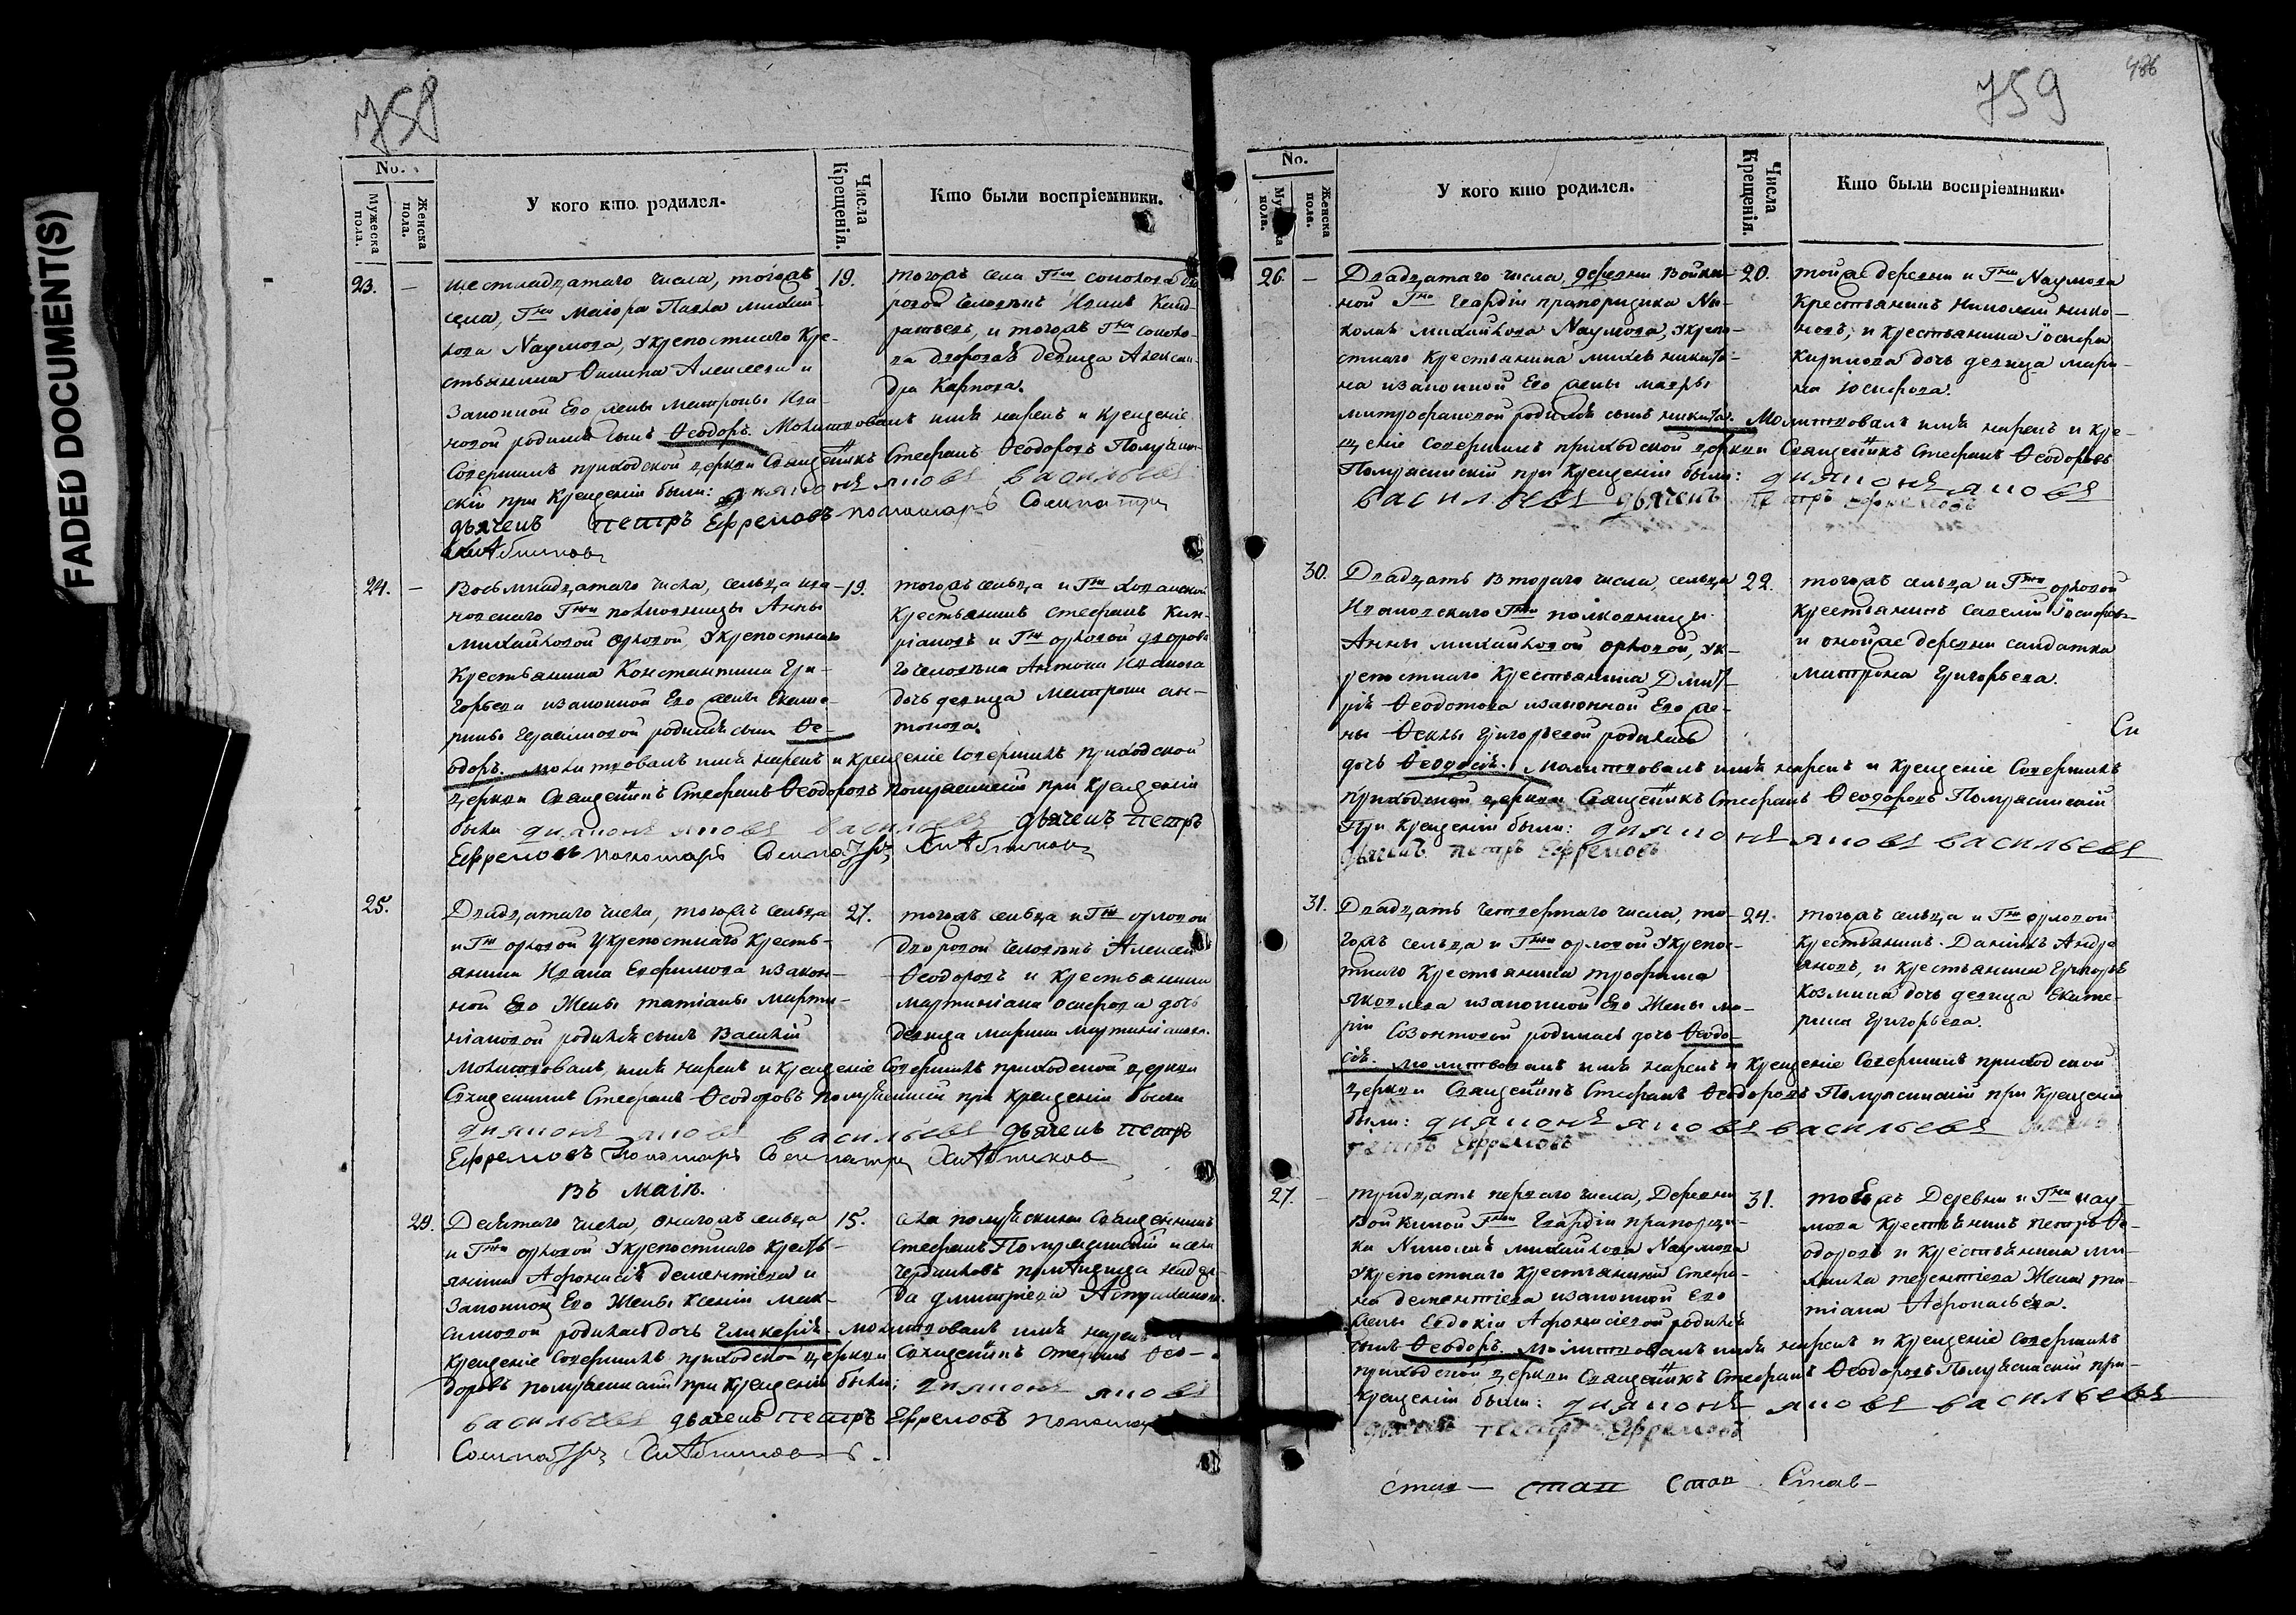 FADED DOCUMENT(S)
758
No.
Мужеска пола.
Женска пола.
У кого кто родился.
Числа Крещенія.
Кто были воспріемники.
23. — шестнадцатаго числа, тогожъ
села, Гна Маіора Павла Михай-
лова Наумова, Укрепостнаго Кре-
стьянина Филипа Алексеева и
Законной Его жены Матроны Ива-
новой родился сынъ Ѳеодоръ. Молитвовалъ имя нарекъ и крещеніе
Совершилъ приходской церкви Священникъ Стефанъ Ѳеодоровъ
скій при Крещеніи были: диаконъ яковъ васильевъ
дьячекъ петръ Ефремовъ пономарь
19. тогожъ села Гна
ровой человекъ Иванъ Кинд-
ратьевъ, и тогожъ Гна
ва дворовая девица Алексан-
дра Карпова.
24. — Восьмнадцатаго числа, сельца Ива-
новскаго Гжи полковницы Анны
Михайловой орловой, Укрепостнаго
Крестьянина Константина Гри-
горьева изаконной Его жены Екате-
рины Герасимовой родился сынъ Ѳе-
одоръ. молитвовалъ имя нарекъ и крещеніе совершилъ приходской
церкви Священникъ Стефанъ Ѳеодоровъ при крещеніи
были диаконъ яковъ васильевъ дьячекъ петръ
Ефремовъ пономарь
19. тогожъ сельца и Гжи
Крестьянинъ стефанъ Кип-
ріановъ и Гжи орловой дворова-
го человека Антона Иванова
дочь девица Матрона ан-
тонова.
25. Двадцатаго числа, тогожъ сельца
и Гжи орловой Укрепостнаго Кресть-
янина Ивана Евфимова изакон-
ной Его Жены татіаны Марти-
ніановой родился сынъ Василій
Молитвовалъ, имя нарекъ и крещеніе Совершилъ приходской церкви
Священникъ Стефанъ Ѳеодоровъ при крещеніи были
диаконъ яковъ васильевъ дьячекъ петръ
Ефремовъ Пономарь
27. тогожъ сельца и Гжи орловой
дворовой человекъ Алексей
Ѳеодоровъ и крестьянина
мартиніана осифова дочь
девица Марина Мартиніанова.
Въ Маіѣ.
29. Девятаго числа, оногожъ сельца
и Гжи орловой Укрепостнаго Кресть-
янина Афонасія дементіева и
Законной Его Жены Ксеніи мак-
симовой родилась дочь Гликерія. молитвовалъ имя нарекъ и
крещеніе Совершилъ приходской церкви Священникъ Стефанъ Ѳео-
доровъ при крещеніи были: диаконъ яковъ
васильевъ дьячекъ петръ Ефремовъ пономарь
15. села Священникъ
стефанъ и села
дмитріева
759
486
No.
Мужеска пола.
Женска пола.
У кого кто родился.
Числа Крещенія.
Кто были воспріемники.
26. — Двадцатаго числа, деревни Войки-
ной Гна Гвардіи прапорщика Ни-
колая михайлова Наумова, Укрепо-
стнаго Крестьянина михея никити-
на изаконной Его жены мавры
митрофановой родился сынъ никита. Молитвовалъ имя нарекъ и кре-
щеніе Совершилъ приходской церкви Священникъ Стефанъ Ѳеодоровъ
при Крещеніи были: диаконъ яковъ
васильевъ дьячекъ петръ Ефремовъ
20. тойже деревни и Гна Наумова
Крестьянинъ Николай нико-
новъ, и крестьянина Іосифа
Кирилова дочь девица мари-
на іосифова.
30. Двадцать втораго числа, сельца
Ивановскаго Гжи полковницы
Анны михайловой орловой, Ук-
репостнаго Крестьянина Дмит-
рія Ѳеодотова изаконной Его же-
ны Ѳеклы Григорьевой родилась
дочь Ѳеодосія. Молитвовалъ имя нарекъ и крещеніе Совершилъ
приходской церкви Священникъ Стефанъ Ѳеодоровъ
При Крещеніи были: диаконъ яковъ васильевъ
дьячекъ петръ Ефремовъ
22. тогожъ сельца и Гжи орловой
Крестьянинъ Савелій Іосифовъ
и онойже деревни салдатка
матрона Григорьева.
31. Двадцать четвертаго числа, то-
гожъ сельца и Гжи орловой Укрепос-
тнаго Крестьянина трофима
Яковлева изаконной Его Жены ма-
ріи Созонтовой родилась дочь Ѳеодо-
сія. молитвовалъ имя нарекъ и крещеніе Совершилъ приходской
церкви Священникъ Стефанъ Ѳеодоровъ при Крещеніи
были: диаконъ яковъ васильевъ дьячекъ
петръ Ефремовъ
24. тогожъ сельца и Гжи орловой
крестьянинъ Данилъ Андре-
яновъ, и крестьянина Григорья
Козмина дочь девица Екате-
рина Григорьева.
27. — тридцать перваго числа, Деревни
Войкиной Гна Гвардіи прапорщи-
ка Николая михайлова Наумова
Укрепостнаго Крестьянина Стефа-
на дементіева изаконной Его
жены Евдокіи Афонасіевой родился
сынъ Ѳеодоръ. Молитвовалъ имя нарекъ и крещеніе Совершилъ
приходской церкви Священникъ Стефанъ Ѳеодоровъ при
крещеніи были: диаконъ яковъ васильевъ
дьячекъ петръ Ефремовъ
31. тоежъ Деревни и Гна нау-
мова крестьянинъ петръ Ѳе-
одоровъ и крестьянина ми-
хаила терентіева Жена та-
тіана Афонасьева.